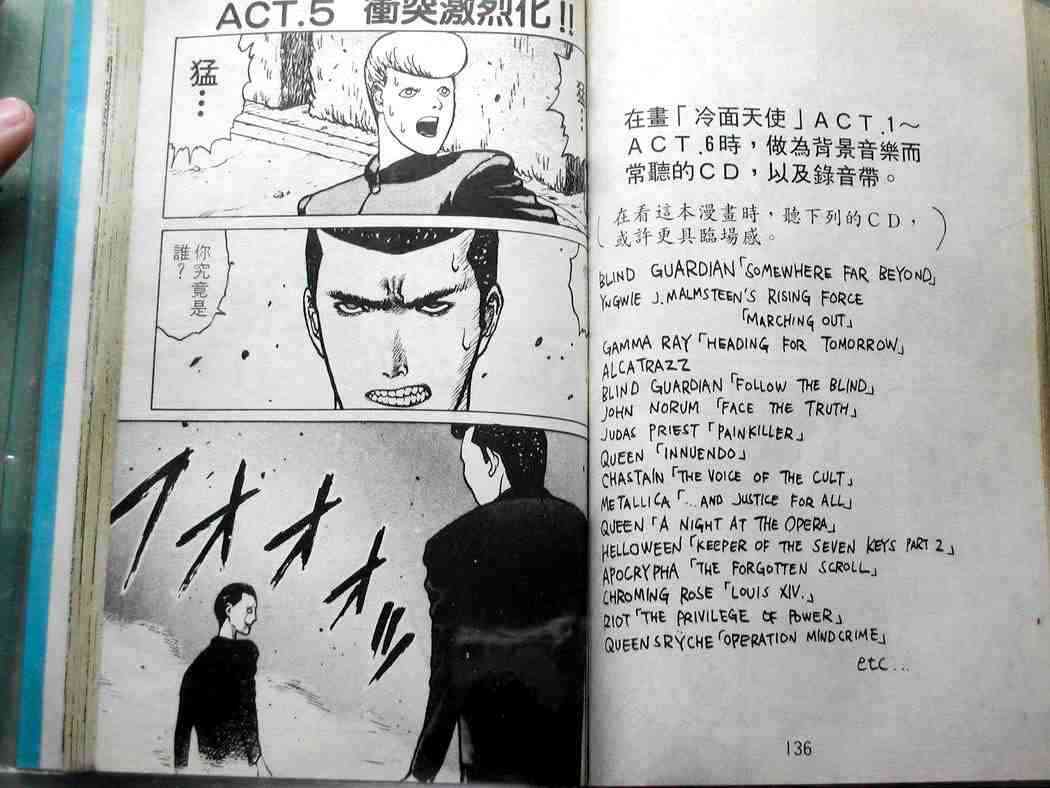 ACT.5 衝突激烈化!!
猛…
你究竟是
誰?
フオオオオッ
在畫「冷面天使」ACT.1～
ACT.6時，做為背景音樂而
常聽的CD，以及錄音帶。
(在看這本漫畫時，聽下列的CD，
或許更具臨場感。)
BLIND GUARDIAN「SOMEWHERE FAR BEYOND」
YNGWIE J.MALMSTEEN'S RISING FORCE
「MARCHING OUT」
GAMMA RAY「HEADING FOR TOMORROW」
ALCATRAZZ
BLIND GUARDIAN「FOLLOW THE BLIND」
JOHN NORUM「FACE THE TRUTH」
JUDAS PRIEST「PAINKILLER」
QUEEN「INNUENDO」
CHASTAIN「THE VOICE OF THE CULT」
METALLICA「...AND JUSTICE FOR ALL」
QUEEN「A NIGHT AT THE OPERA」
HELLOWEEN「KEEPER OF THE SEVEN KEYS PART 2」
APOCRYPHA「THE FORGOTTEN SCROLL」
CHROMING ROSE「LOUIS XIV.」
RIOT「THE PRIVILEGE OF POWER」
QUEENSRŸCHE「OPERATION MINDCRIME」
etc...
136